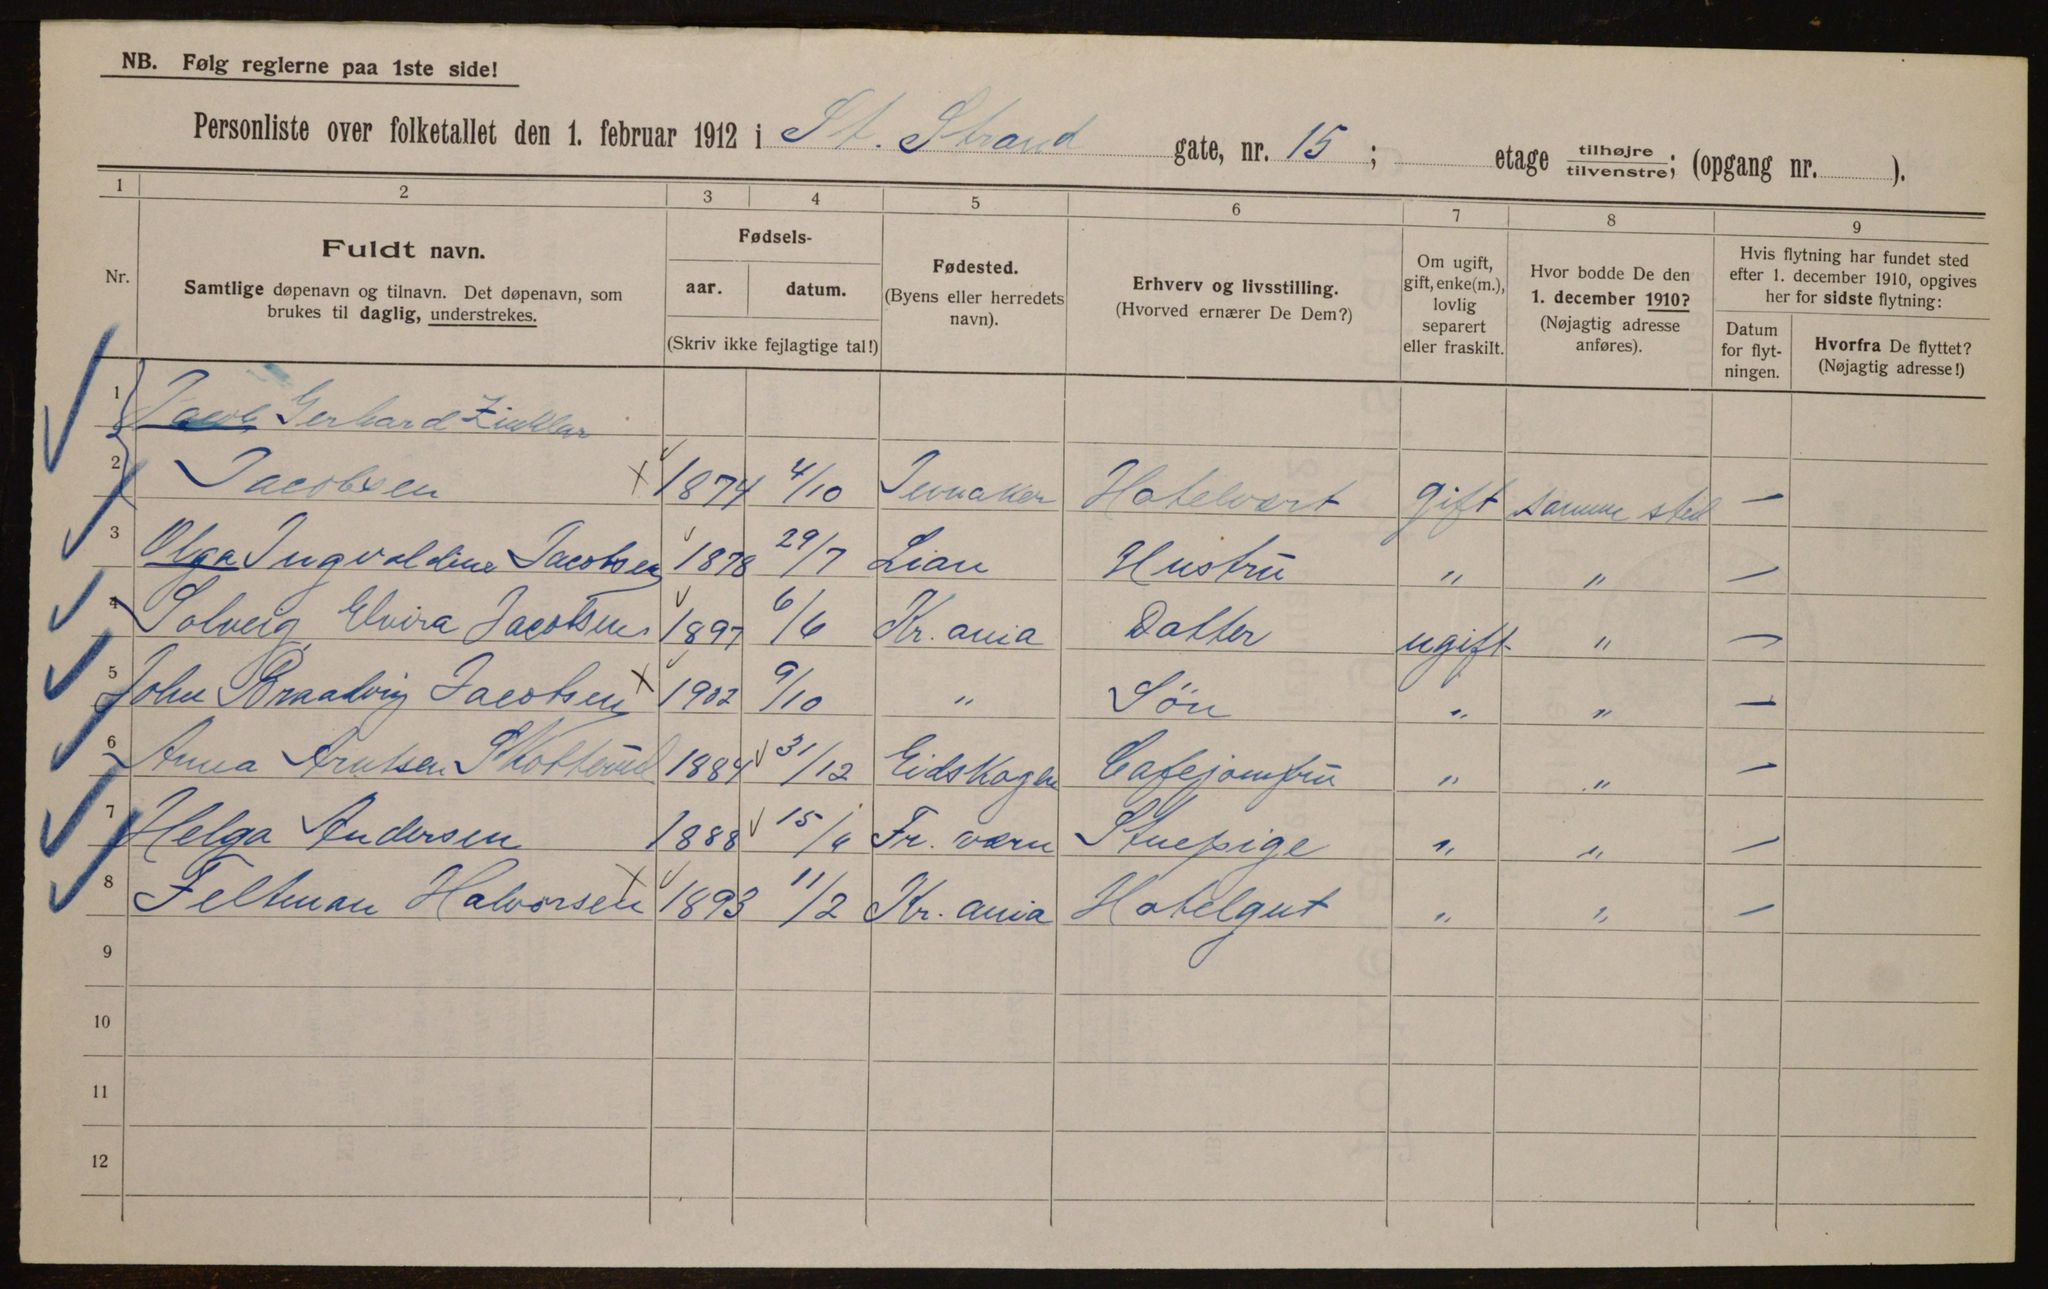 NB. Følg reglerne paa 1ste side!
Personliste over folketallet den 1. februar 1912 i St. Strand gate, nr. 15 ; etage tilhøjre/tilvenstre; (opgang nr. ).
1 2 3 4 5 6 7 8 9
Nr.
Fuldt navn.
Samtlige døpenavn og tilnavn. Det døpenavn, som
brukes til daglig, understrekes.
Fødsels-
aar. datum.
(Skriv ikke fejlagtige tal!)
Fødested.
(Byens eller herredets
navn).
Erhverv og livsstilling.
(Hvorved ernærer De Dem?)
Om ugift,
gift, enke(m.),
lovlig
separert
eller fraskilt.
Hvor bodde De den
1. december 1910?
(Nøjagtig adresse
anføres).
Hvis flytning har fundet sted
efter 1. december 1910, opgives
her for sidste flytning:
Datum
for flyt-
ningen.
Hvorfra De flyttet?
(Nøjagtig adresse!)
1 Jacob Gerhard
2 Jacobsen 1874 4/10 Jevnaker Hotelvært gift samme sted —
3 Olga Ingvoldine Jacobsen 1878 29/7 Lian Hustru " " —
4 Solveig Elvira Jacobsen 1897 6/6 Kr. ania Datter ugift " —
5 John Braadvig Jacobsen 1902 9/10 " Søn " " —
6 Anna Arntsen 1884 31/12 Eidskogen Cafejomfru " " —
7 Helga Andersen 1888 15/6 Fr.værn Stuepige " " —
8 Feltman Halvorsen 1893 11/2 Kr. ania Hotelgut " " —
9
10
11
12